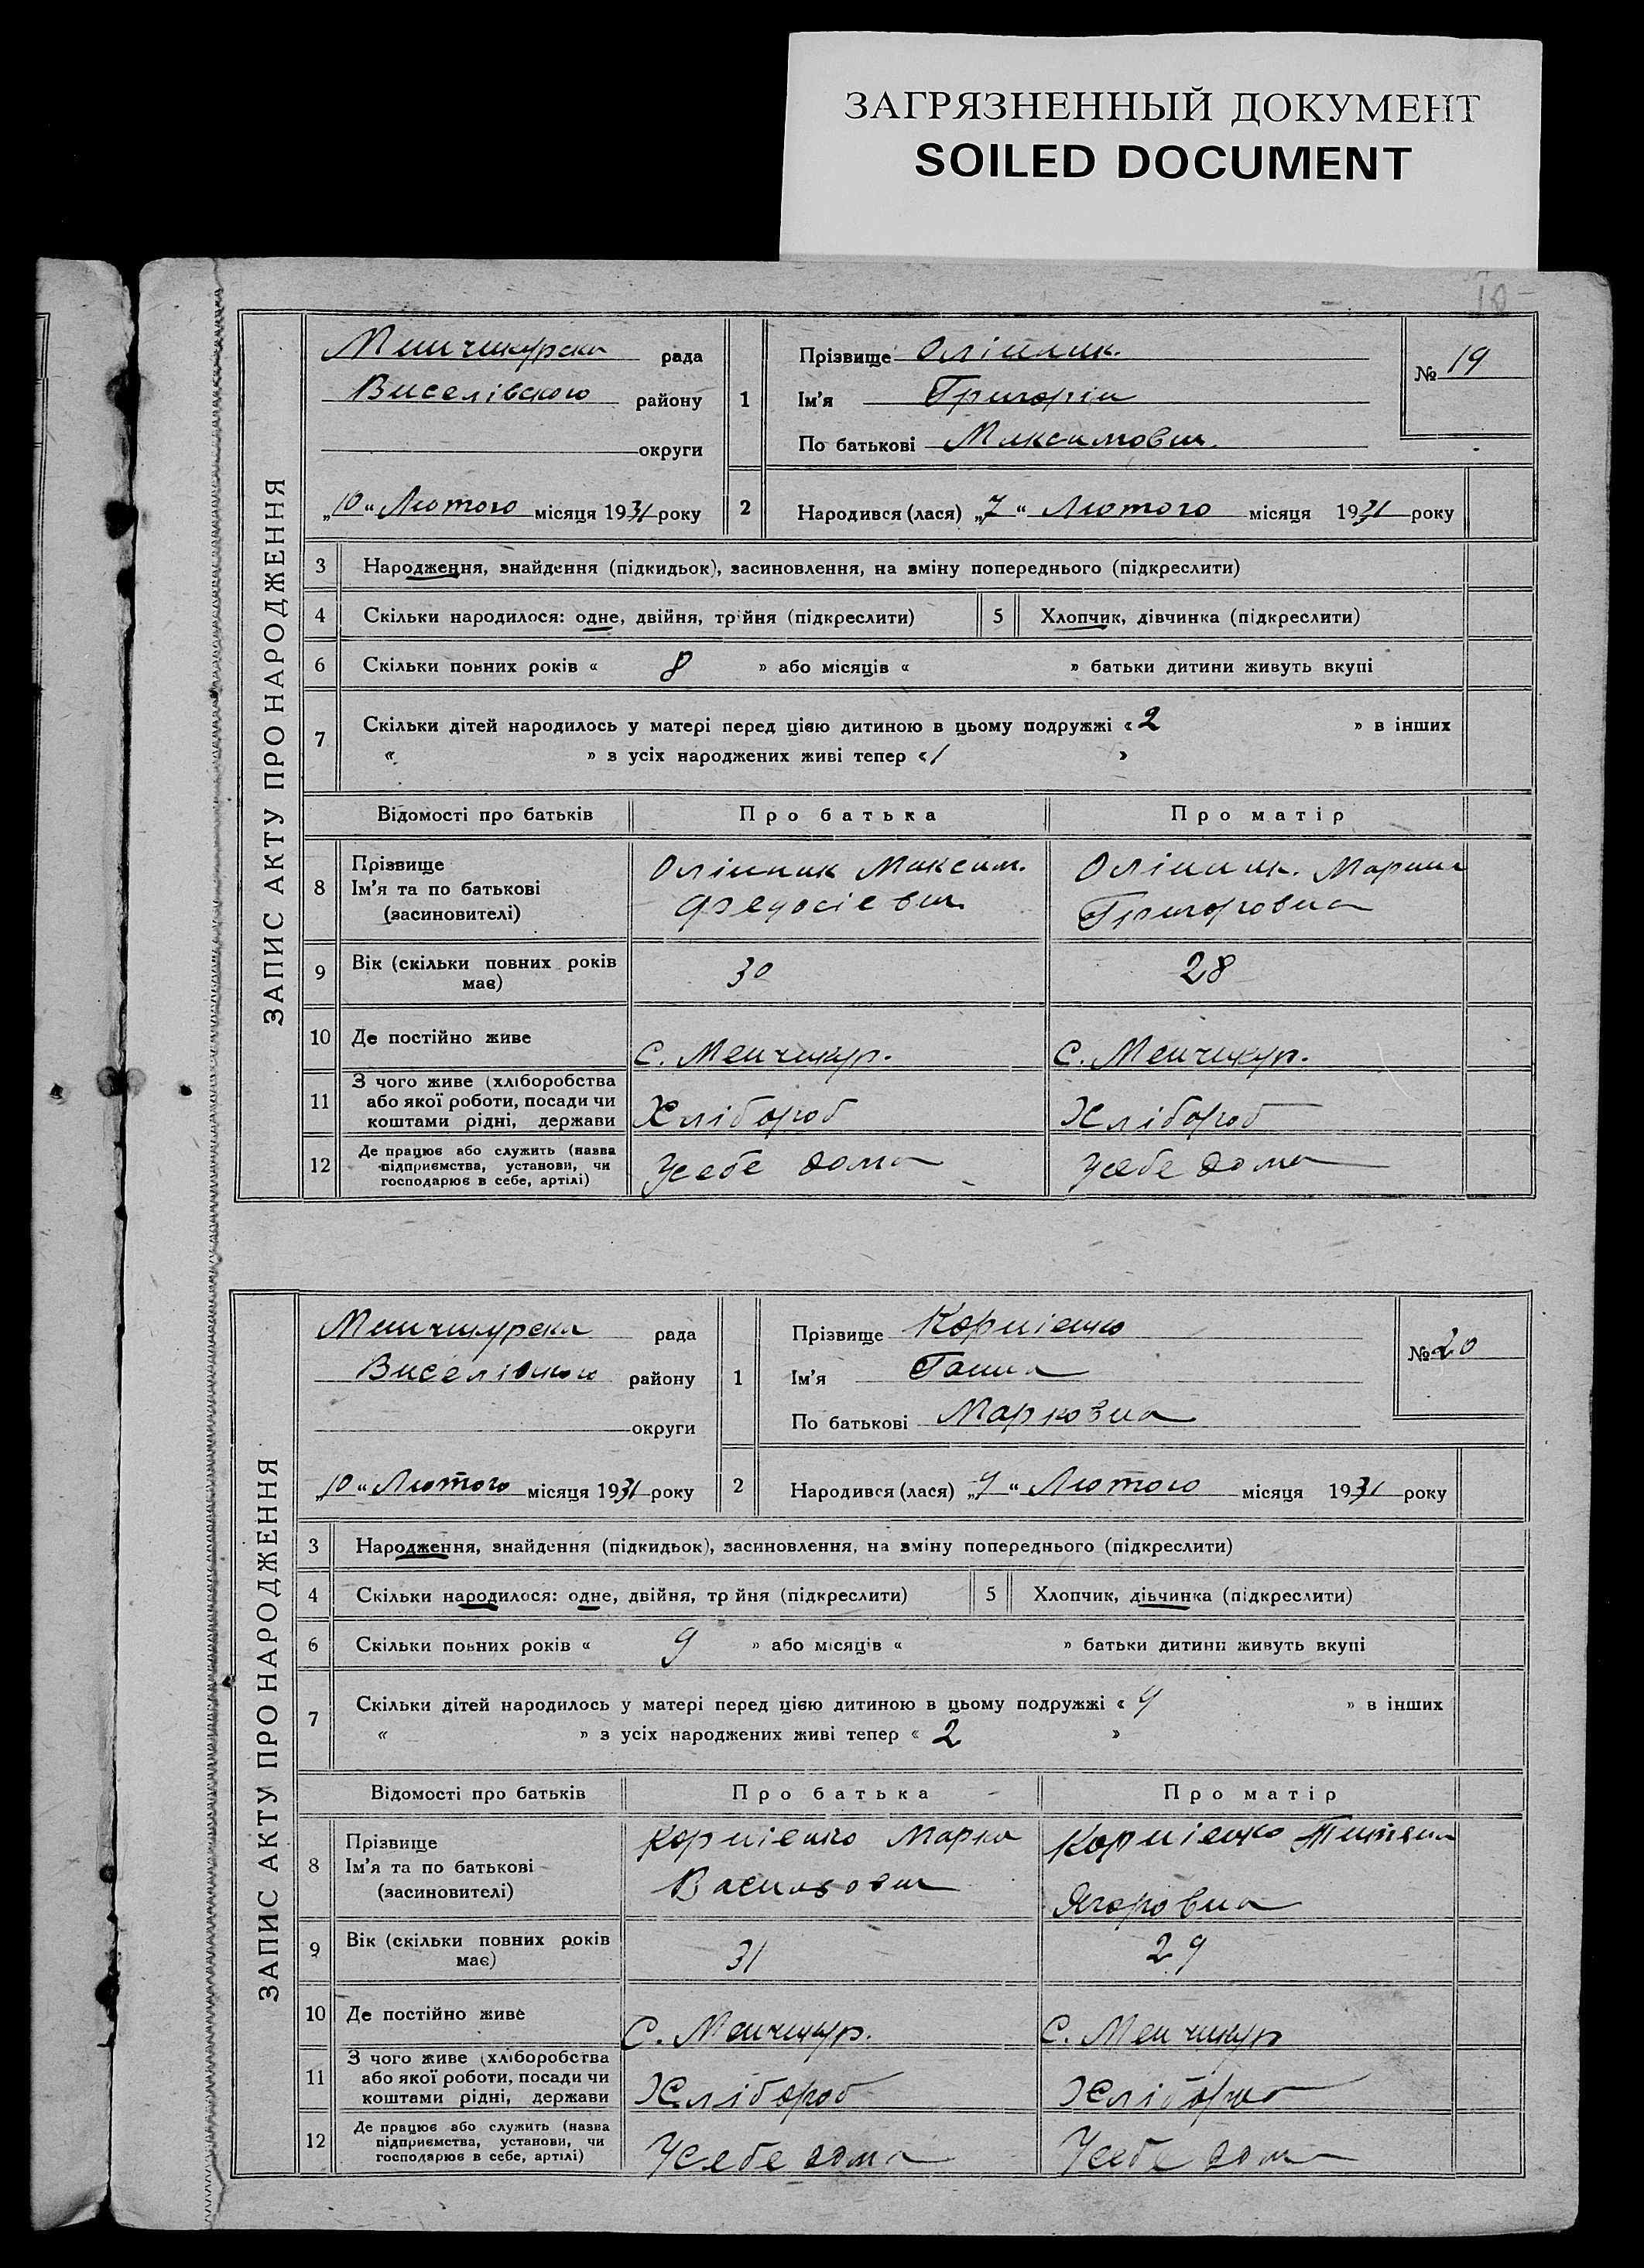 ЗАГРЯЗНЕННЫЙ ДОКУМЕНТ
SOILED DOCUMENT
10
ЗАПИС АКТУ ПРО НАРОДЖЕННЯ
Менчикурска рада
Виселівського району
округи
„10“ Лютого місяця 1931 року
1
Прізвище Олійник.
Ім’я Григорій
По батькові Максимович.
№ 19
2
Народився (лася) „7“ Лютого місяця 1931 року
3 Народження, знайдення (підкидьок), засиновлення, на зміну попереднього (підкреслити)
4 Скільки народилося: одне, двійня, трійня (підкреслити)
5 Хлопчик, дівчинка (підкреслити)
6 Скільки повних років « 8 » або місяців « » батьки дитини живуть вкупі
7 Скільки дітей народилось у матері перед цією дитиною в цьому подружжі « 2 » в інших
« » з усіх народжених живі тепер « 1 »
Відомості про батьків Про батька Про матір
8 Прізвище
Ім’я та по батькові
(засиновителі)
Олійник Максим.
Федосіевич
Олійник. Марина
Григоровна
9 Вік (скільки повних років
має)
30
28
10 Де постійно живе
с. Менчикур.
с. Менчикур.
11 З чого живе (хліборобства
або якої роботи, посади чи
коштами рідні, держави
Хлібороб
Хлібороб
12 Де працює або служить (назва
підприємства, установи, чи
господарює в себе, артілі)
Усебе дома
Усебе дома
ЗАПИС АКТУ ПРО НАРОДЖЕННЯ
Менчикурска рада
Виселівського району
округи
„10“ Лютого місяця 1931 року
1
Прізвище Корніенко
Ім’я Ганна
По батькові Марковна
№ 20
2
Народився (лася) „ “ Лютого місяця 1931 року
3 Народження, знайдення (підкидьок), засиновлення, на зміну попереднього (підкреслити)
4 Скільки народилося: одне, двійня, трійня (підкреслити)
5 Хлопчик, дівчинка (підкреслити)
6 Скільки повних років « 9 » або місяців « » батьки дитини живуть вкупі
7 Скільки дітей народилось у матері перед цією дитиною в цьому подружжі « » в інших
« » з усіх народжених живі тепер « 2 »
Відомості про батьків Про батька Про матір
8 Прізвище
Ім’я та по батькові
(засиновителі)
Корніенко Марко
Васильович
Корніенко Титяна
Ягоровна
9 Вік (скільки повних років
має)
31
29
10 Де постійно живе
С. Менчикур.
С. Менчикур
11 З чого живе (хліборобства
або якої роботи, посади чи
коштами рідні, держави
Хлібороб
Хлібороб
12 Де працює або служить (назва
підприємства, установи, чи
господарює в себе, артілі)
Усебе дома
Усебе дома